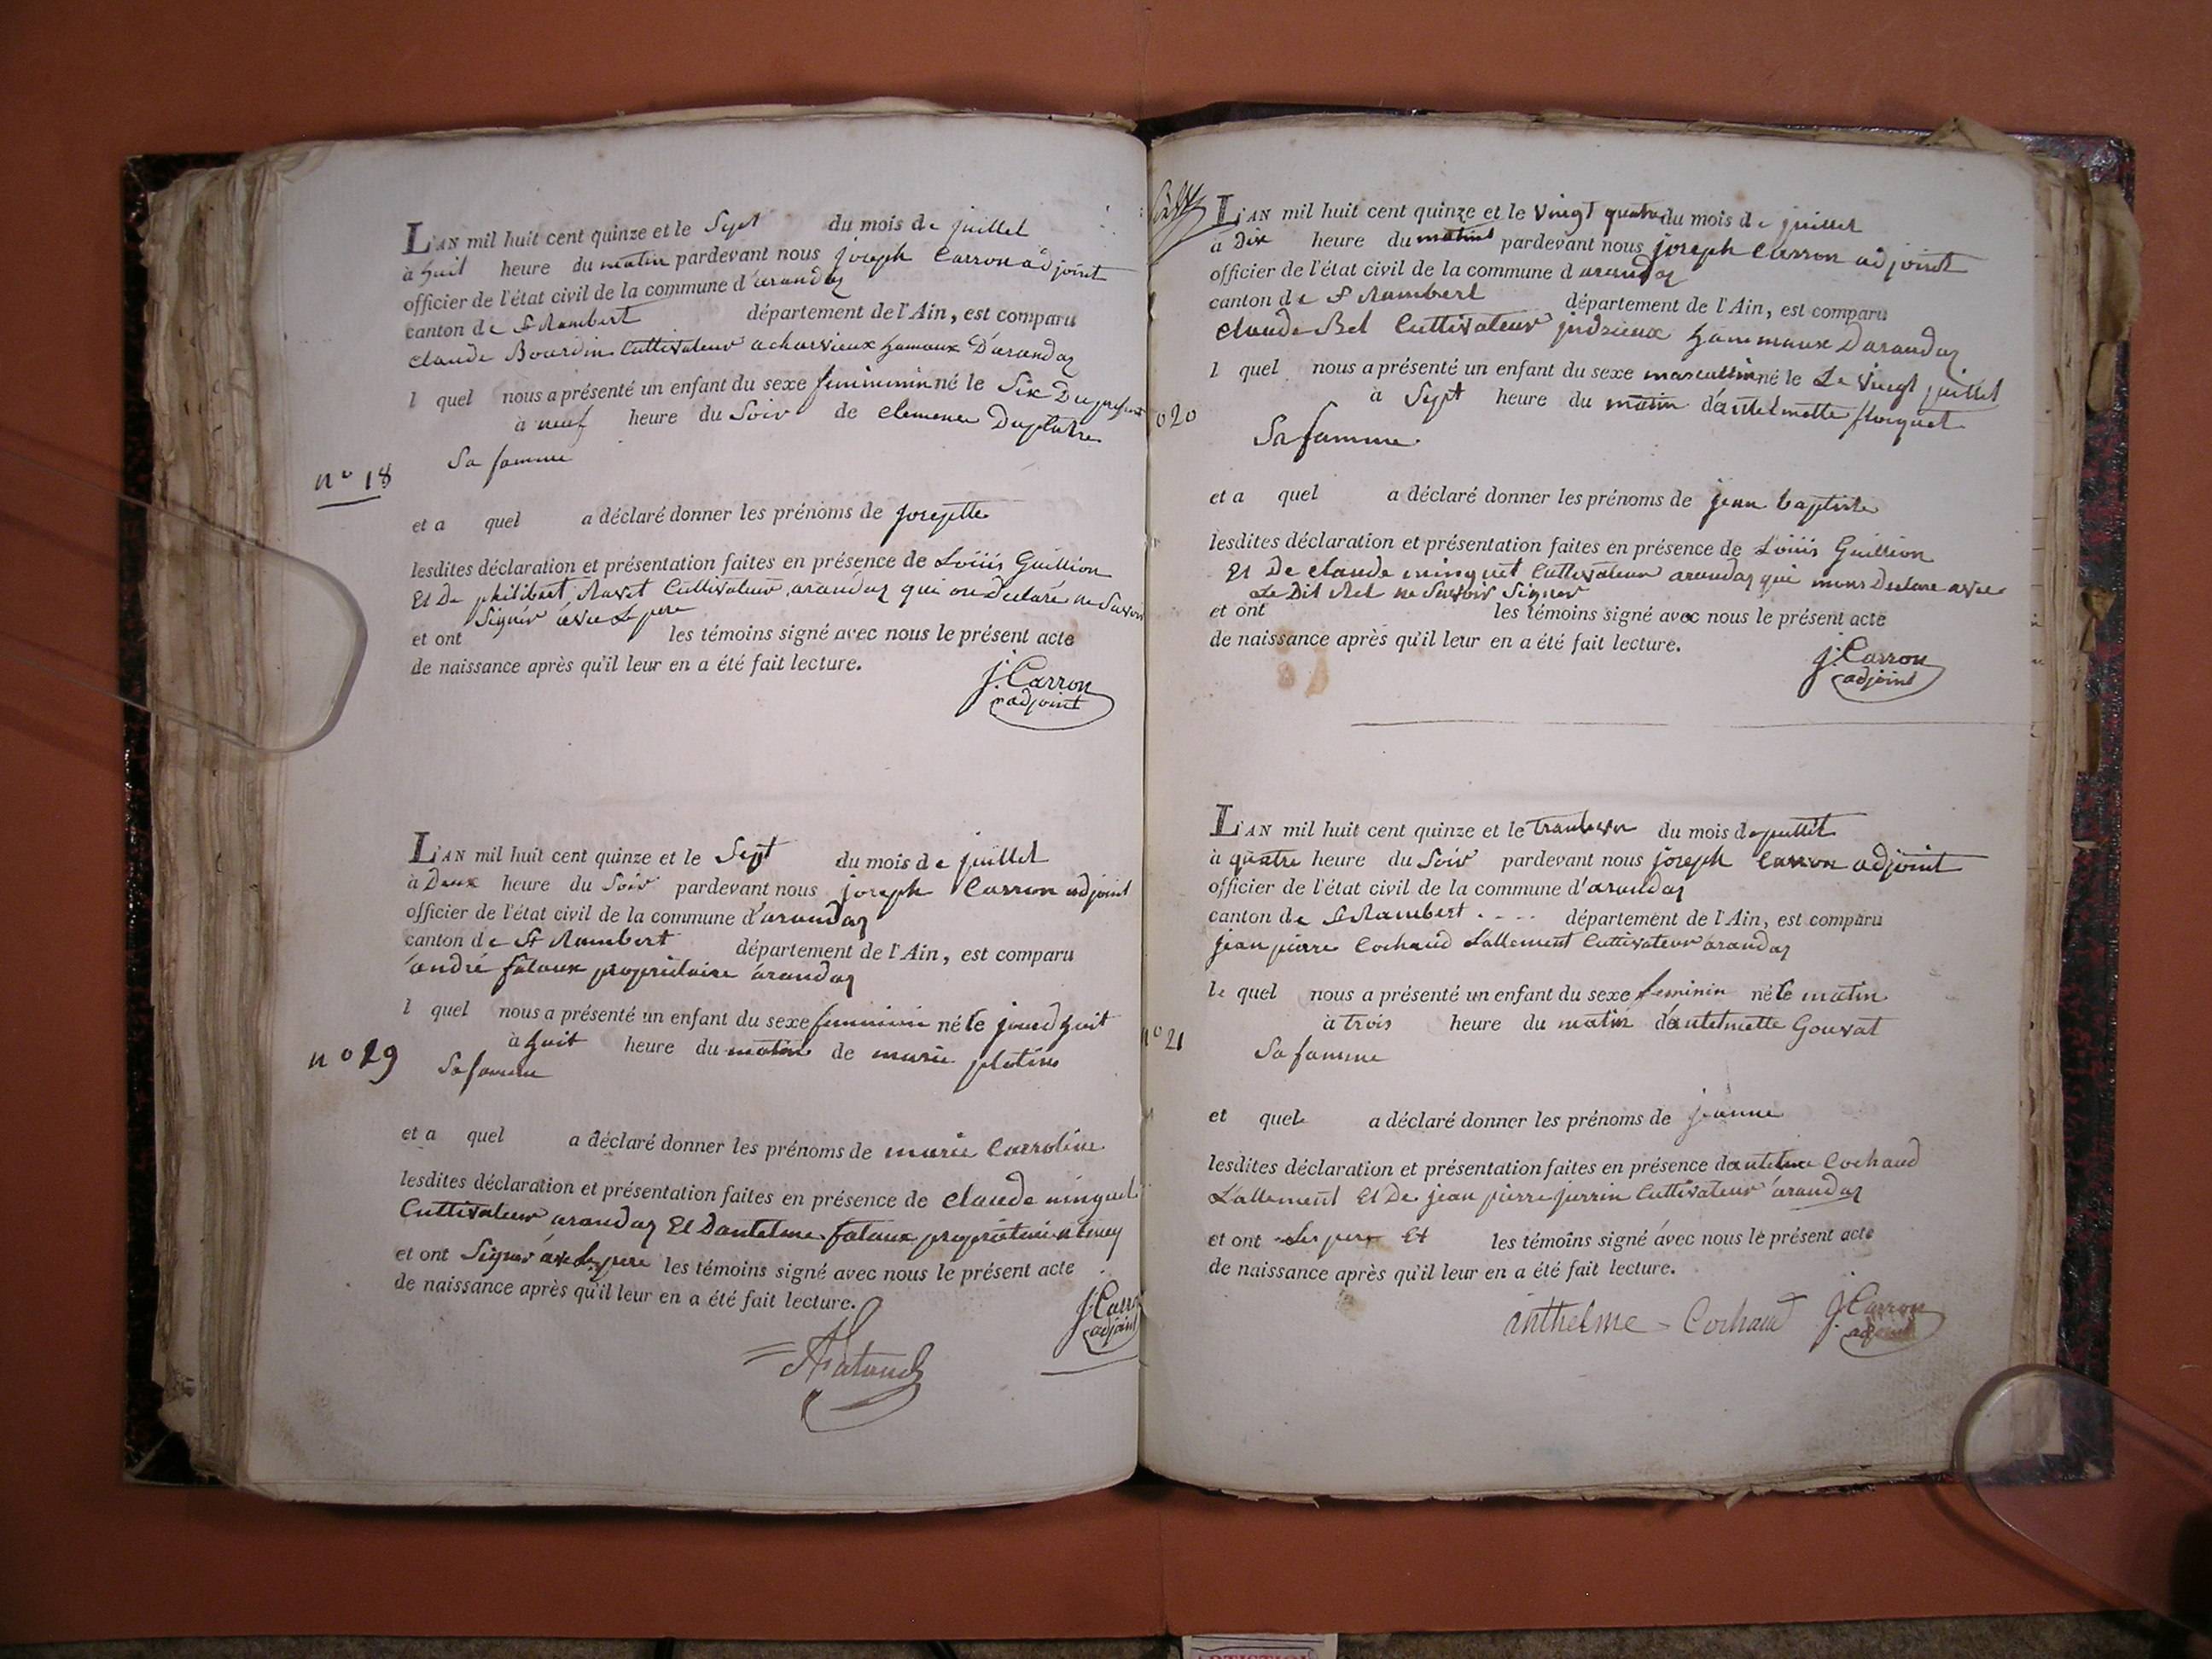 L'AN mil huit cent quinze et le Sept du mois de juillet
à huit heure du matin pardevant nous joseph Carron adjoint
officier de l'état civil de la commune d'arandas
canton de St Rambert département de l'Ain, est comparu
claude Bourdin Cultivateur a charvieux hamaux D'arandas
l quel nous a présenté un enfant du sexe feminimin né le Six Du present
à neuf heure du Soir de clemence Duplatre
Sa famme
n° 18
et a quel a déclaré donner les prénoms de josephtte
lesdites déclaration et présentation faites en présence de Loüis Guillion
Et De philibert Ravet Cultivateur arandas qui on Déclaré ne Savoir
Signér avec Le pere
et ont les témoins signé avec nous le présent acte
de naissance après qu'il leur en a été fait lecture.
j. Carron
adjoint
L'AN mil huit cent quinze et le Sept du mois de juillet
à Deux heure du Soir pardevant nous joseph Carron adjoint
officier de l'état civil de la commune d'arandas
canton de St Rambert département de l'Ain, est comparu
andré fataux proprietaire arandas
l quel nous a présenté un enfant du sexe feminin né le jourd huit
à huit heure du matin de marie platine
n° 19 Sa famme
et a quel a déclaré donner les prénoms de marie Carroline
lesdites déclaration et présentation faites en présence de claude minguet
Cultivateur arandas Et Dantelme fataux proprietaire a tenay
et ont Signér avec Le pere les témoins signé avec nous le présent acte
de naissance après qu'il leur en a été fait lecture.
j. Carron
adjoint
Fataud
L'AN mil huit cent quinze et le Vingt quatre du mois de juillet
à Dix heure du matin pardevant nous joseph Carron adjoint
officier de l'état civil de la commune d arandas
canton de St Rambert département de l'Ain, est comparu
claude Bel Cultivateur indrieux hammaux Darandas
l quel nous a présenté un enfant du sexe masculin né le Le vingt juillet
à Sept heure du matin d'antelmette floquet
020
Sa famme
et a quel a déclaré donner les prénoms de jean baptiste
lesdites déclaration et présentation faites en présence de Loüis Guillion
Et De claude minguet Cultivateur arandas qui mons Declare avec
Le Dit Bel ne Savoir Signer
et ont les témoins signé avec nous le présent acte
de naissance après qu'il leur en a été fait lecture.
j. Carron
adjoint
L'AN mil huit cent quinze et le du mois de juillit
à quatre heure du Soir pardevant nous joseph Carron adjoint
officier de l'état civil de la commune d'arandas
canton de St Rambert département de l'Ain, est comparu
jean pierre Cochaud Lallement Cultivateur arandas
le quel nous a présenté un enfant du sexe feminin né le matin
à trois heure du matin d'antelmette Gouvat
n° 21
Sa famme
et quel a déclaré donner les prénoms de jeanne
lesdites déclaration et présentation faites en présence dantelme Cochaud
Lallement Et De jean pierre perrin Cultivateur arandas
et ont Les pere Et les témoins signé avec nous le présent acte
de naissance après qu'il leur en a été fait lecture.
anthelme - Cochaud j. Carron
adjoint